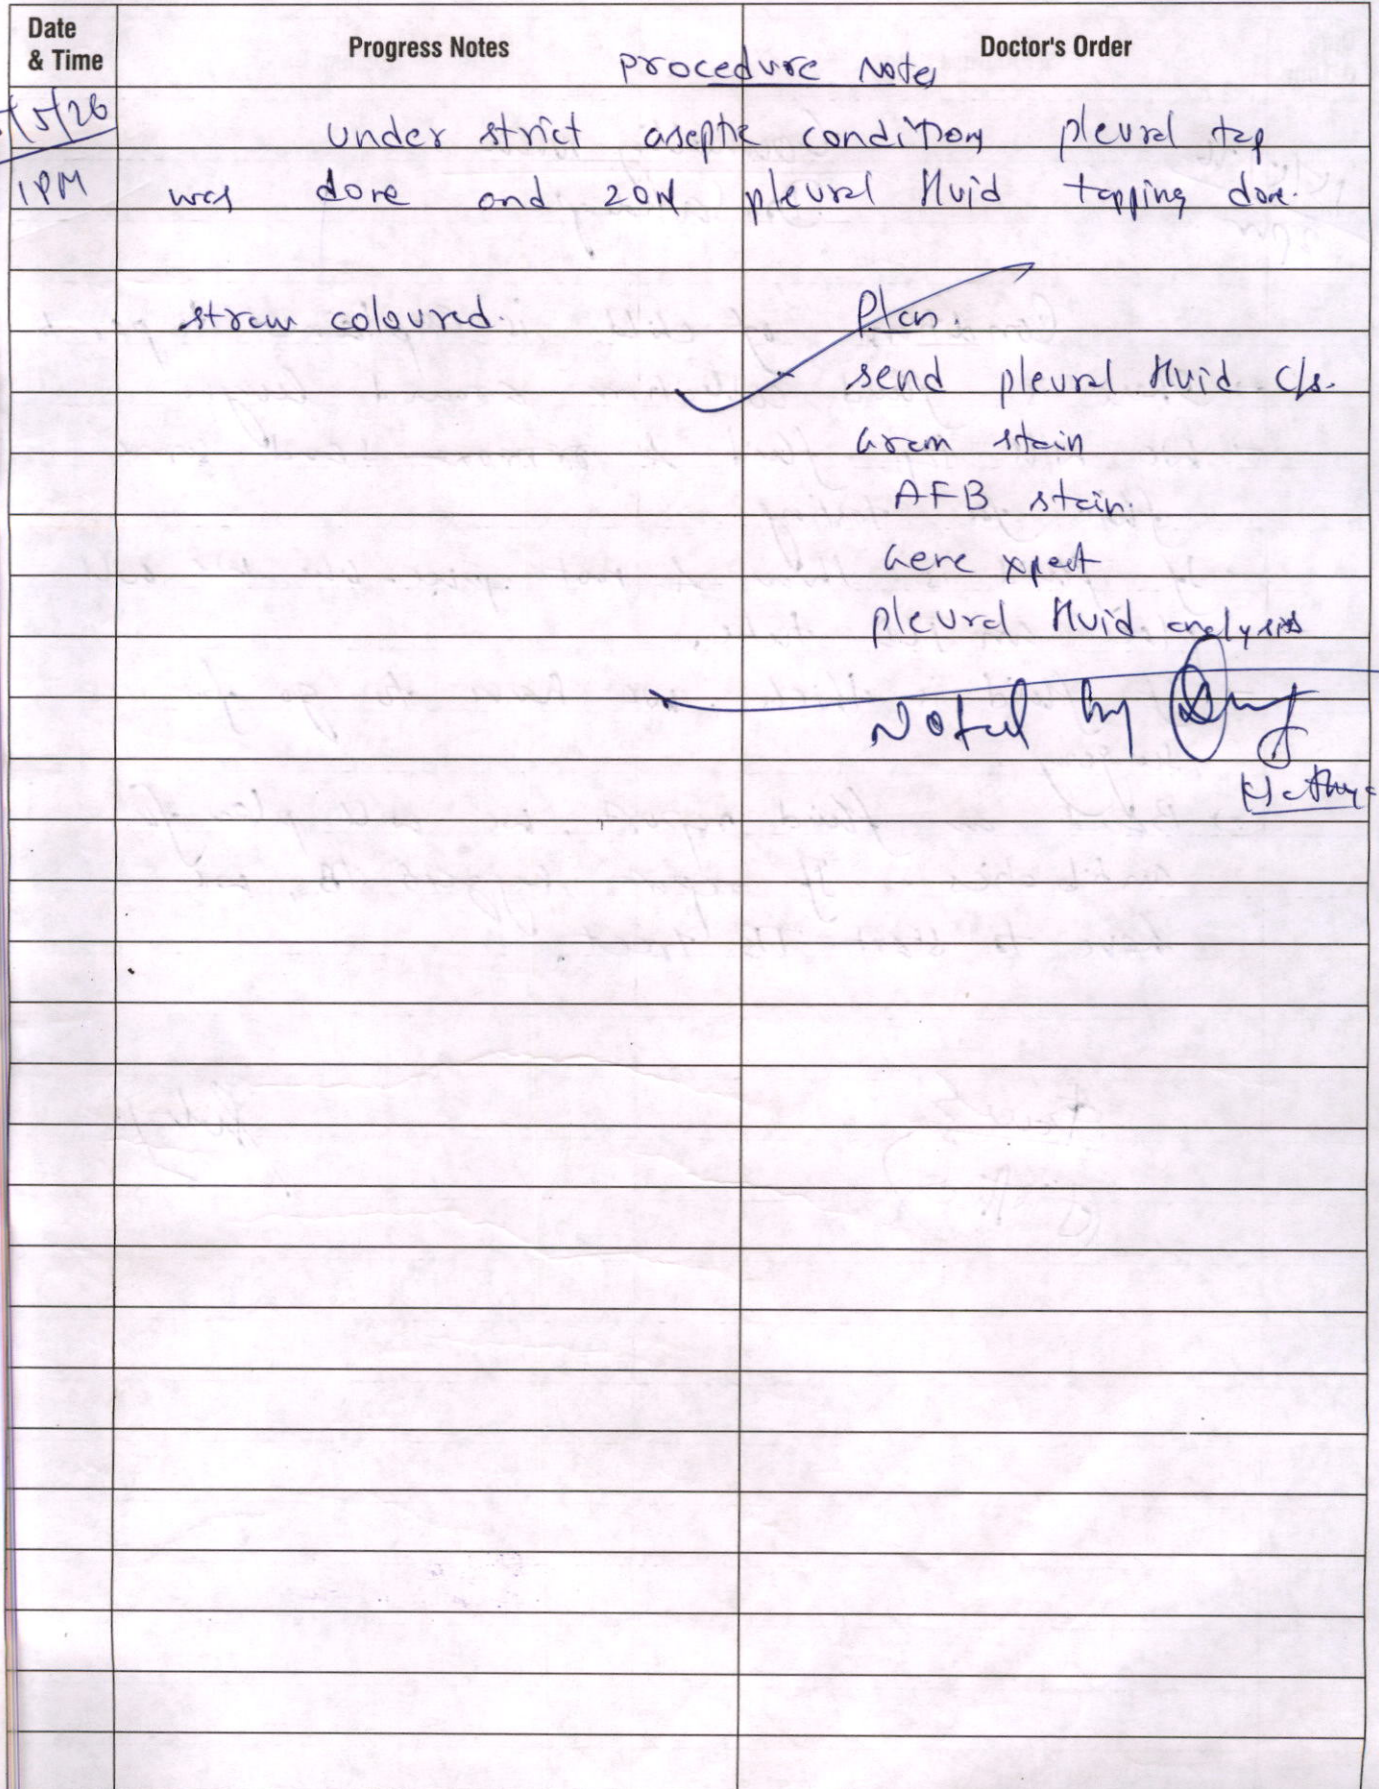 Date
& Time
Progress Notes
Doctor's Order
Procedure Notes
/5/26
1PM
under strict aseptic condition pleural tap
was done and 20ml pleural fluid tapping done.
straw coloured.
Plan.
send pleural fluid c/s.
Gram stain
AFB stain.
Gene xpert
pleural fluid analysis
Noted by